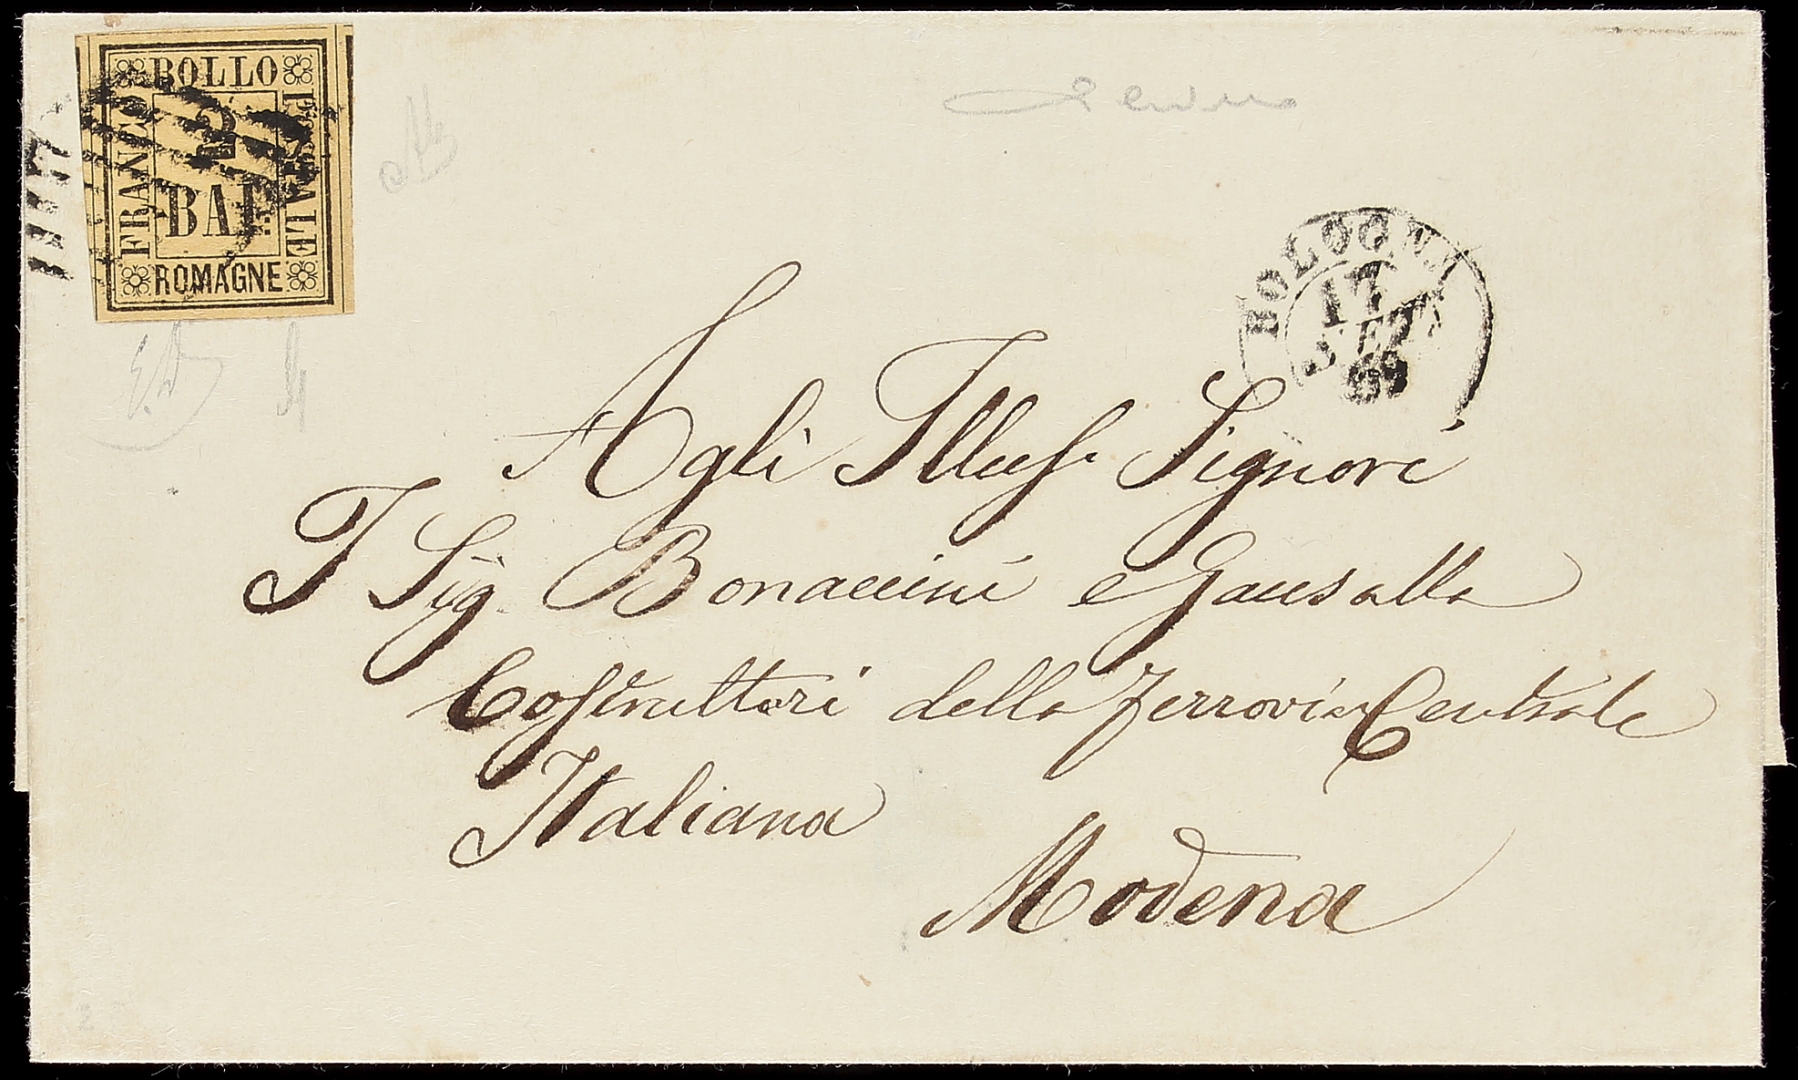 BOLLO
FRANCO
POSTALE
2
BAI
ROMAGNE
BOLOGNA
17
SET
59
Agli Illus. Signori
I Sig. Bonaccini e
Costruttori della Ferrovia Centrale
Italiana
Modena